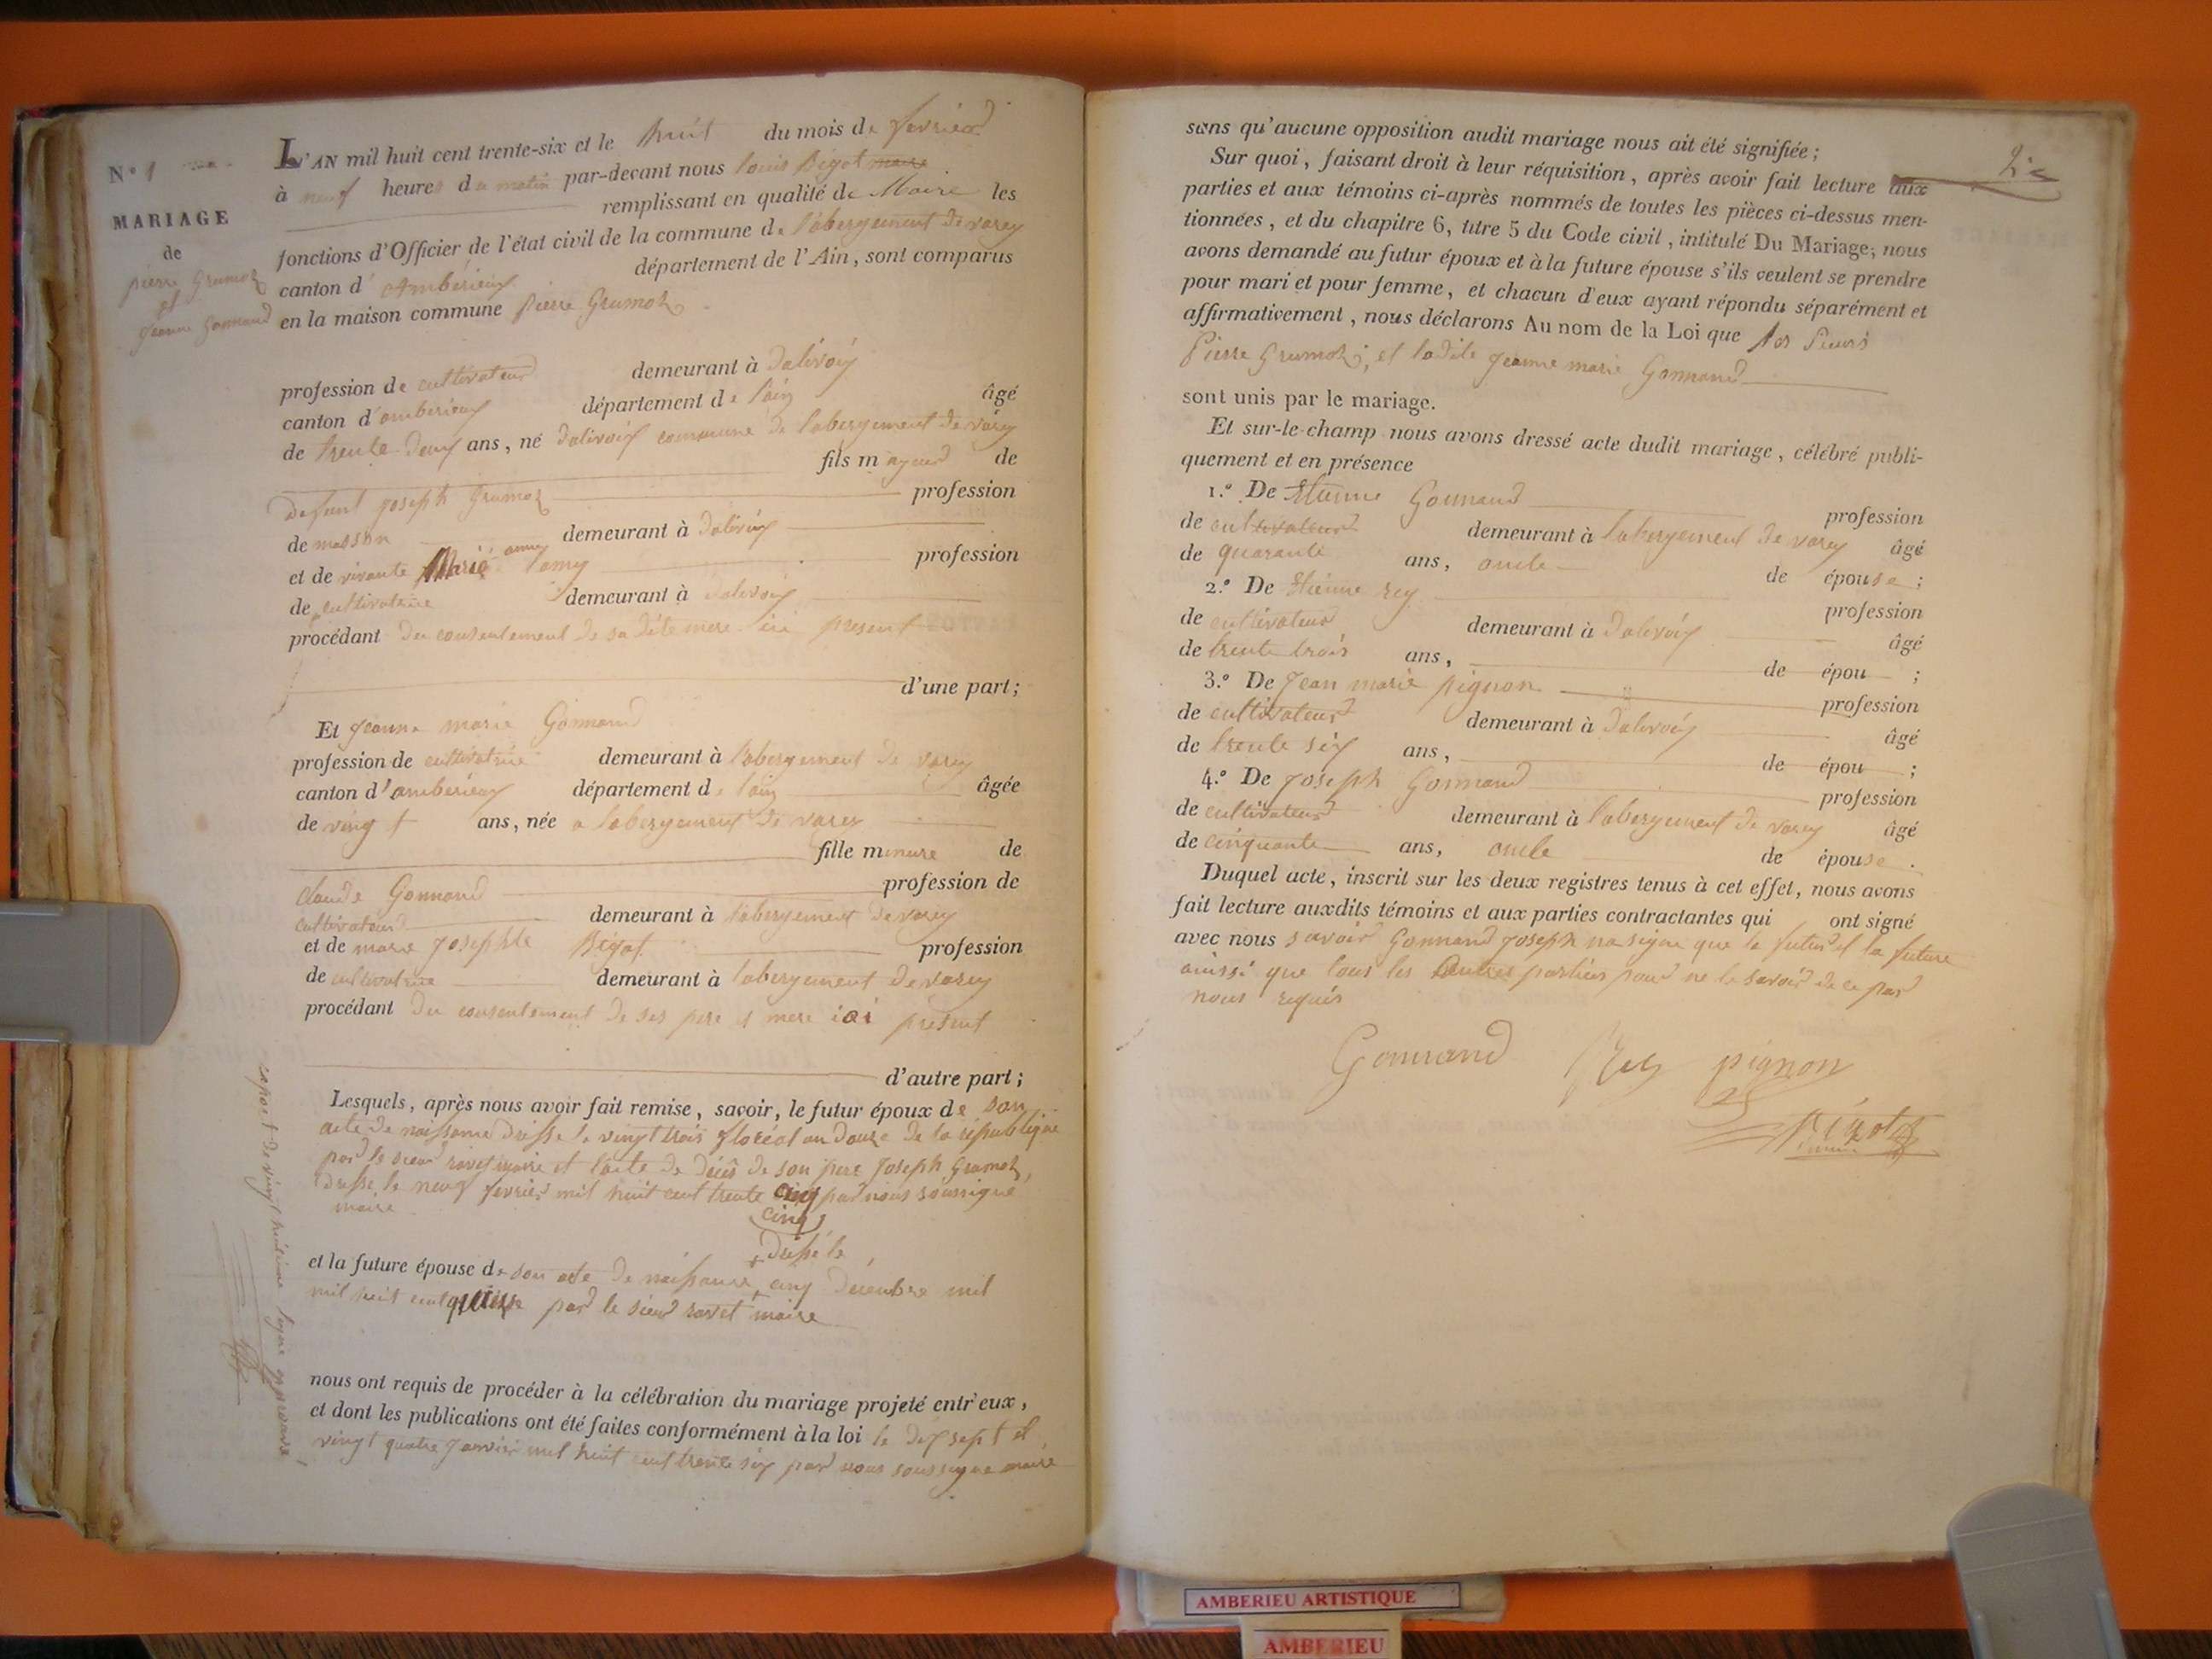 N° 1
MARIAGE
de
pierre Grumoz
et
jeanne Gonnand
L'AN mil huit cent trente-six et le huit du mois de fevrier
à neuf heures du matin par-devant nous louis Bigot maire
remplissant en qualité de Maire les
fonctions d'Officier de l'état civil de la commune de l'abergement de varey
canton d' Ambérieux département de l'Ain, sont comparus
en la maison commune pierre Grumoz
profession de cultivateur demeurant à Dalivoix
canton d'amberieux département de l'ain âgé
de trente deux ans, né Dalivoix commune de l'abergement de varey
fils mageur de
Defunt joseph Grumoz profession
de masson demeurant à Dalivoix
et de vivante Marie profession
de cultivatrice demeurant à Dalivoix
procédant du consentement de sa dite mere ici present
d'une part;
Et jeanne marie Gonnand
profession de cultivatrice demeurant à l'abergement de varey
canton d'amberieux département de l'ain âgée
de vingt ans, née a l'abergement de varey
fille mineure de
claude Gonnand profession de
cultivateur demeurant à l'abergement de varey
et de marie josephte Bigot profession
de cultivatrice demeurant à l'abergement de varey
procédant du consentement de ses pere et mere ici présent
d'autre part;
Lesquels, après nous avoir fait remise, savoir, le futur époux de son
acte de naissance dressé le vingt trois floréal an douze de la république
par le sieur ravet maire et l'acte de décès de son pere joseph Grumoz,
dressé le neuf fevrier mil huit cent trente cinq par nous soussigné
maire
cinq
dressé le
et la future épouse de son acte de naissance cinq décembre mil
mil huit cent quinze par le sieur ravet maire
nous ont requis de procéder à la célébration du mariage projeté entr'eux,
et dont les publications ont été faites conformément à la loi le dix sept et
vingt quatre janvier mil huit cent trente six par nous soussigné maire
de vingt huitième ligne approuvé
sans qu'aucune opposition audit mariage nous ait été signifiée;
Sur quoi, faisant droit à leur réquisition, après avoir fait lecture aux
parties et aux témoins ci-après nommés de toutes les pièces ci-dessus men-
tionnées, et du chapitre 6, titre 5 du Code civil, intitulé Du Mariage, nous
avons demandé au futur époux et à la future épouse s'ils veulent se prendre
pour mari et pour femme, et chacun d'eux ayant répondu séparément et
affirmativement, nous déclarons Au nom de la Loi que
Pierre Grumoz, et ladite jeanne marie Gonnand
sont unis par le mariage.
Et sur-le-champ nous avons dressé acte dudit mariage, célébré publi-
quement et en présence
1.° De Etienne Gonnand profession
de cultivateur demeurant à l'abergement de varey âgé
de quarante ans, oncle de épouse;
2.° De Etienne rey profession
de cultivateur demeurant à Dalivoix âgé
de trente trois ans, de épou ;
3.° De jean marie pignon profession
de cultivateur demeurant à Dalivoix âgé
de trente six ans, de épou ;
4.° De joseph Gonnand profession
de cultivateur demeurant à l'abergement de varey âgé
de cinquante ans, oncle de épouse.
Duquel acte, inscrit sur les deux registres tenus à cet effet, nous avons
fait lecture auxdits témoins et aux parties contractantes qui ont signé
avec nous savoir Gonnand joseph na signe que le futur et la future
ainssi que tous les autres parties pour ne le savoir de ce par
nous requis
Gonnand Rey pignon
Bigot
AMBERIEU ARTISTIQUE
AMBERIEU